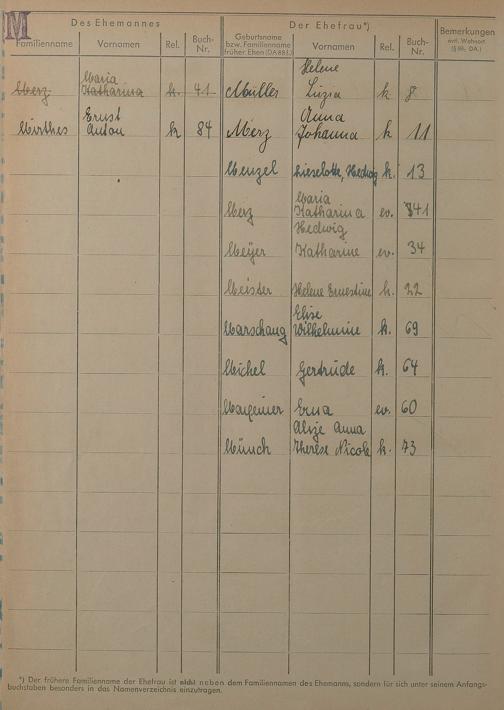 M
Des Ehemannes
Der Ehefrau*)
Bemerkungen
Familienname
Vornamen
Rel.
Buch-
Nr.
Geburtsname
bzw. Familienname
früher. Ehen
Vornamen
Rel.
Buch-
Nr.
evtl. Wohnort
Merz Maria Katharina k. 41 Müller Helene Luzia k 8
Mirthes Ernst Anton k 84 Merz Anna Johanna k 11
Menzel Lieselotte, Hedwig k. 13
Merz Maria Katharina ev. 41
Meijer Hedwig Katharine ev. 34
Meister Helene Ernestine k. 22
Marschang Elise Wilhelmine k. 69
Michel Gertrude k. 64
Erna ev. 60
Münch Alize Anna Therese Nicole k. 73
*) Der frühere Familienname der Ehefrau ist nicht neben dem Familiennamen des Ehemanns, sondern für sich unter seinem Anfangs-
buchstaben besonders in das Namenverzeichnis einzutragen.